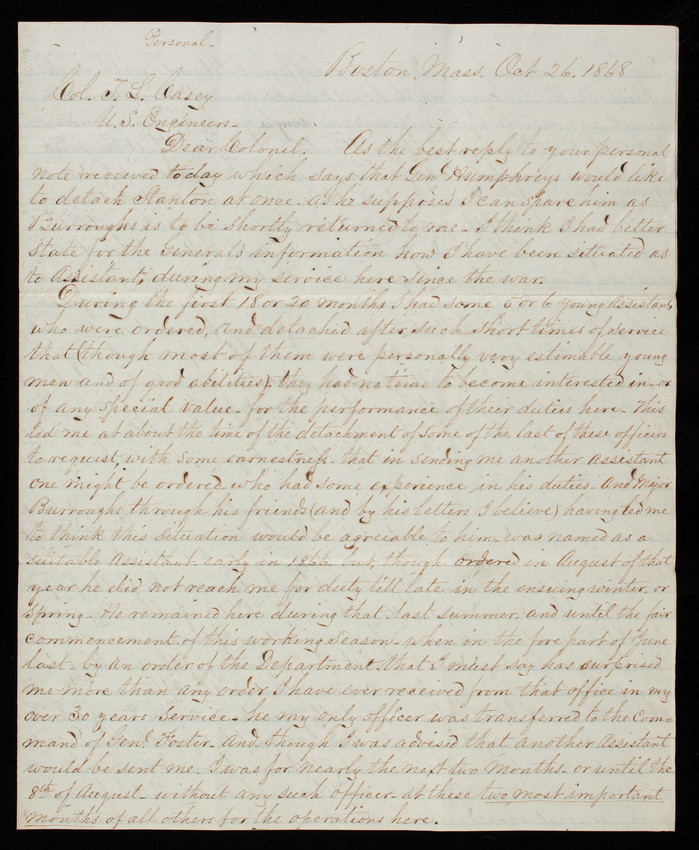 Personal -
Boston, Mass. Oct 26. 1868
Col. T. L. Casey
U. S. Engineers -
Dear Colonel. As the best reply to your personal
note received today which says that Genl Humphreys would like
to detach Stanton at once - as he supposes I can spare him as
Burroughs is to be shortly returned to me - I think I had better
state for the General's information how I have been situated as
to Assistants, during my service here since the war.
During the first 18 or 20 months I had some 5 or 6 young Assistants
who were ordered, and detached after such short times of service
that (though most of them were personally very estimable young
men and of good abilities) they had no time to become interested in - or
of any special value - for the performance of their duties here - This
led me at about the time of the detachment of some of the last of these officers
to request with some earnestness - that in sending me another assistant
one might be ordered who had some experience in his duties - And Major
Burroughs through his friends (and by his letters I believe) having led me
to think this situation would be agreeable to him - was named as a
suitable assistant early in 1866 - but, though ordered in August of that
year he did not reach me for duty till late in the ensuing winter, or
Spring - He remained here during that - last summer, and until the fair
commencement of this working season - when in the fore part of June
last - by an order of the Department that I must say has surprised
me more than any order I have ever received from that office in my
over 30 years service - he my only officer was transferred to the Com=
mand of Genl. Foster. And though I was advised that another Assistant
would be sent me - I was for nearly the next two months - or until the
8th of August - without any such officer - at these two most important
months of all others for the operations here.